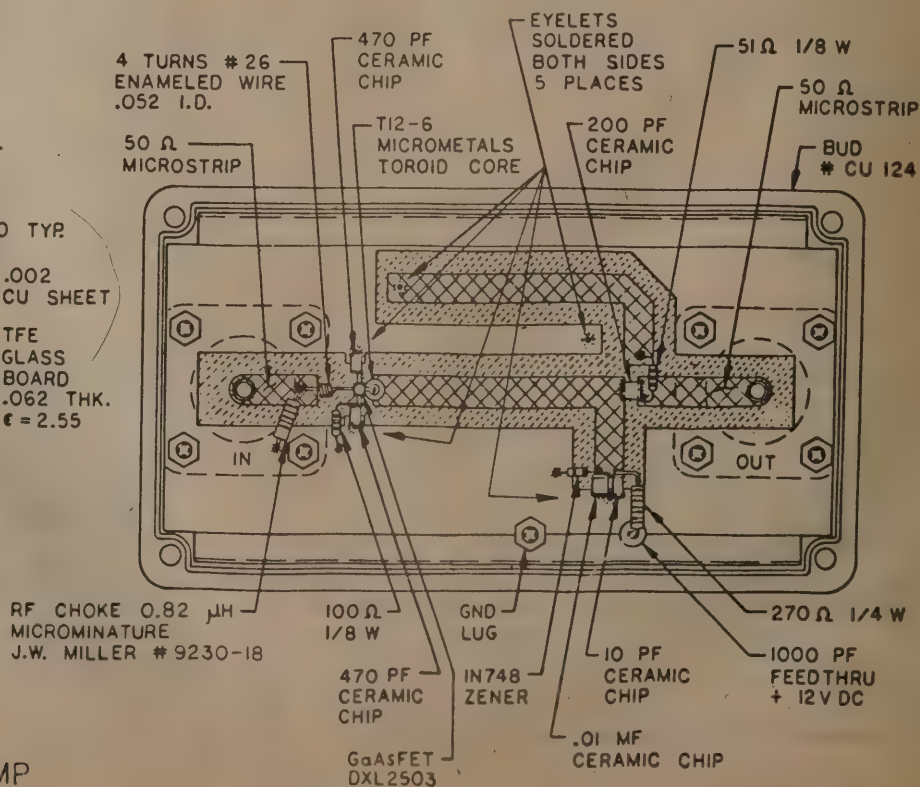 470 PF
CERAMIC
CHIP
EYELETS
SOLDERED
BOTH SIDES
5 PLACES
51 Ω 1/8 W
4 TURNS #26
ENAMELED WIRE
.052 I.D.
50 Ω
MICROSTRIP
T12-6
MICROMETALS
TOROID CORE
200 PF
CERAMIC
CHIP
50 Ω
MICROSTRIP
BUD
# CU 124
TYP.
.002
CU SHEET
TFE
GLASS
BOARD
.062 THK.
ϵ = 2.55
IN
OUT
RF CHOKE 0.82 μH
MICROMINATURE
J.W. MILLER # 9230-18
100 Ω
1/8 W
GND
LUG
270 Ω 1/4 W
470 PF
CERAMIC
CHIP
IN748
ZENER
10 PF
CERAMIC
CHIP
1000 PF
FEEDTHRU
+ 12V DC
.01 MF
CERAMIC CHIP
GaAsFET
DXL2503